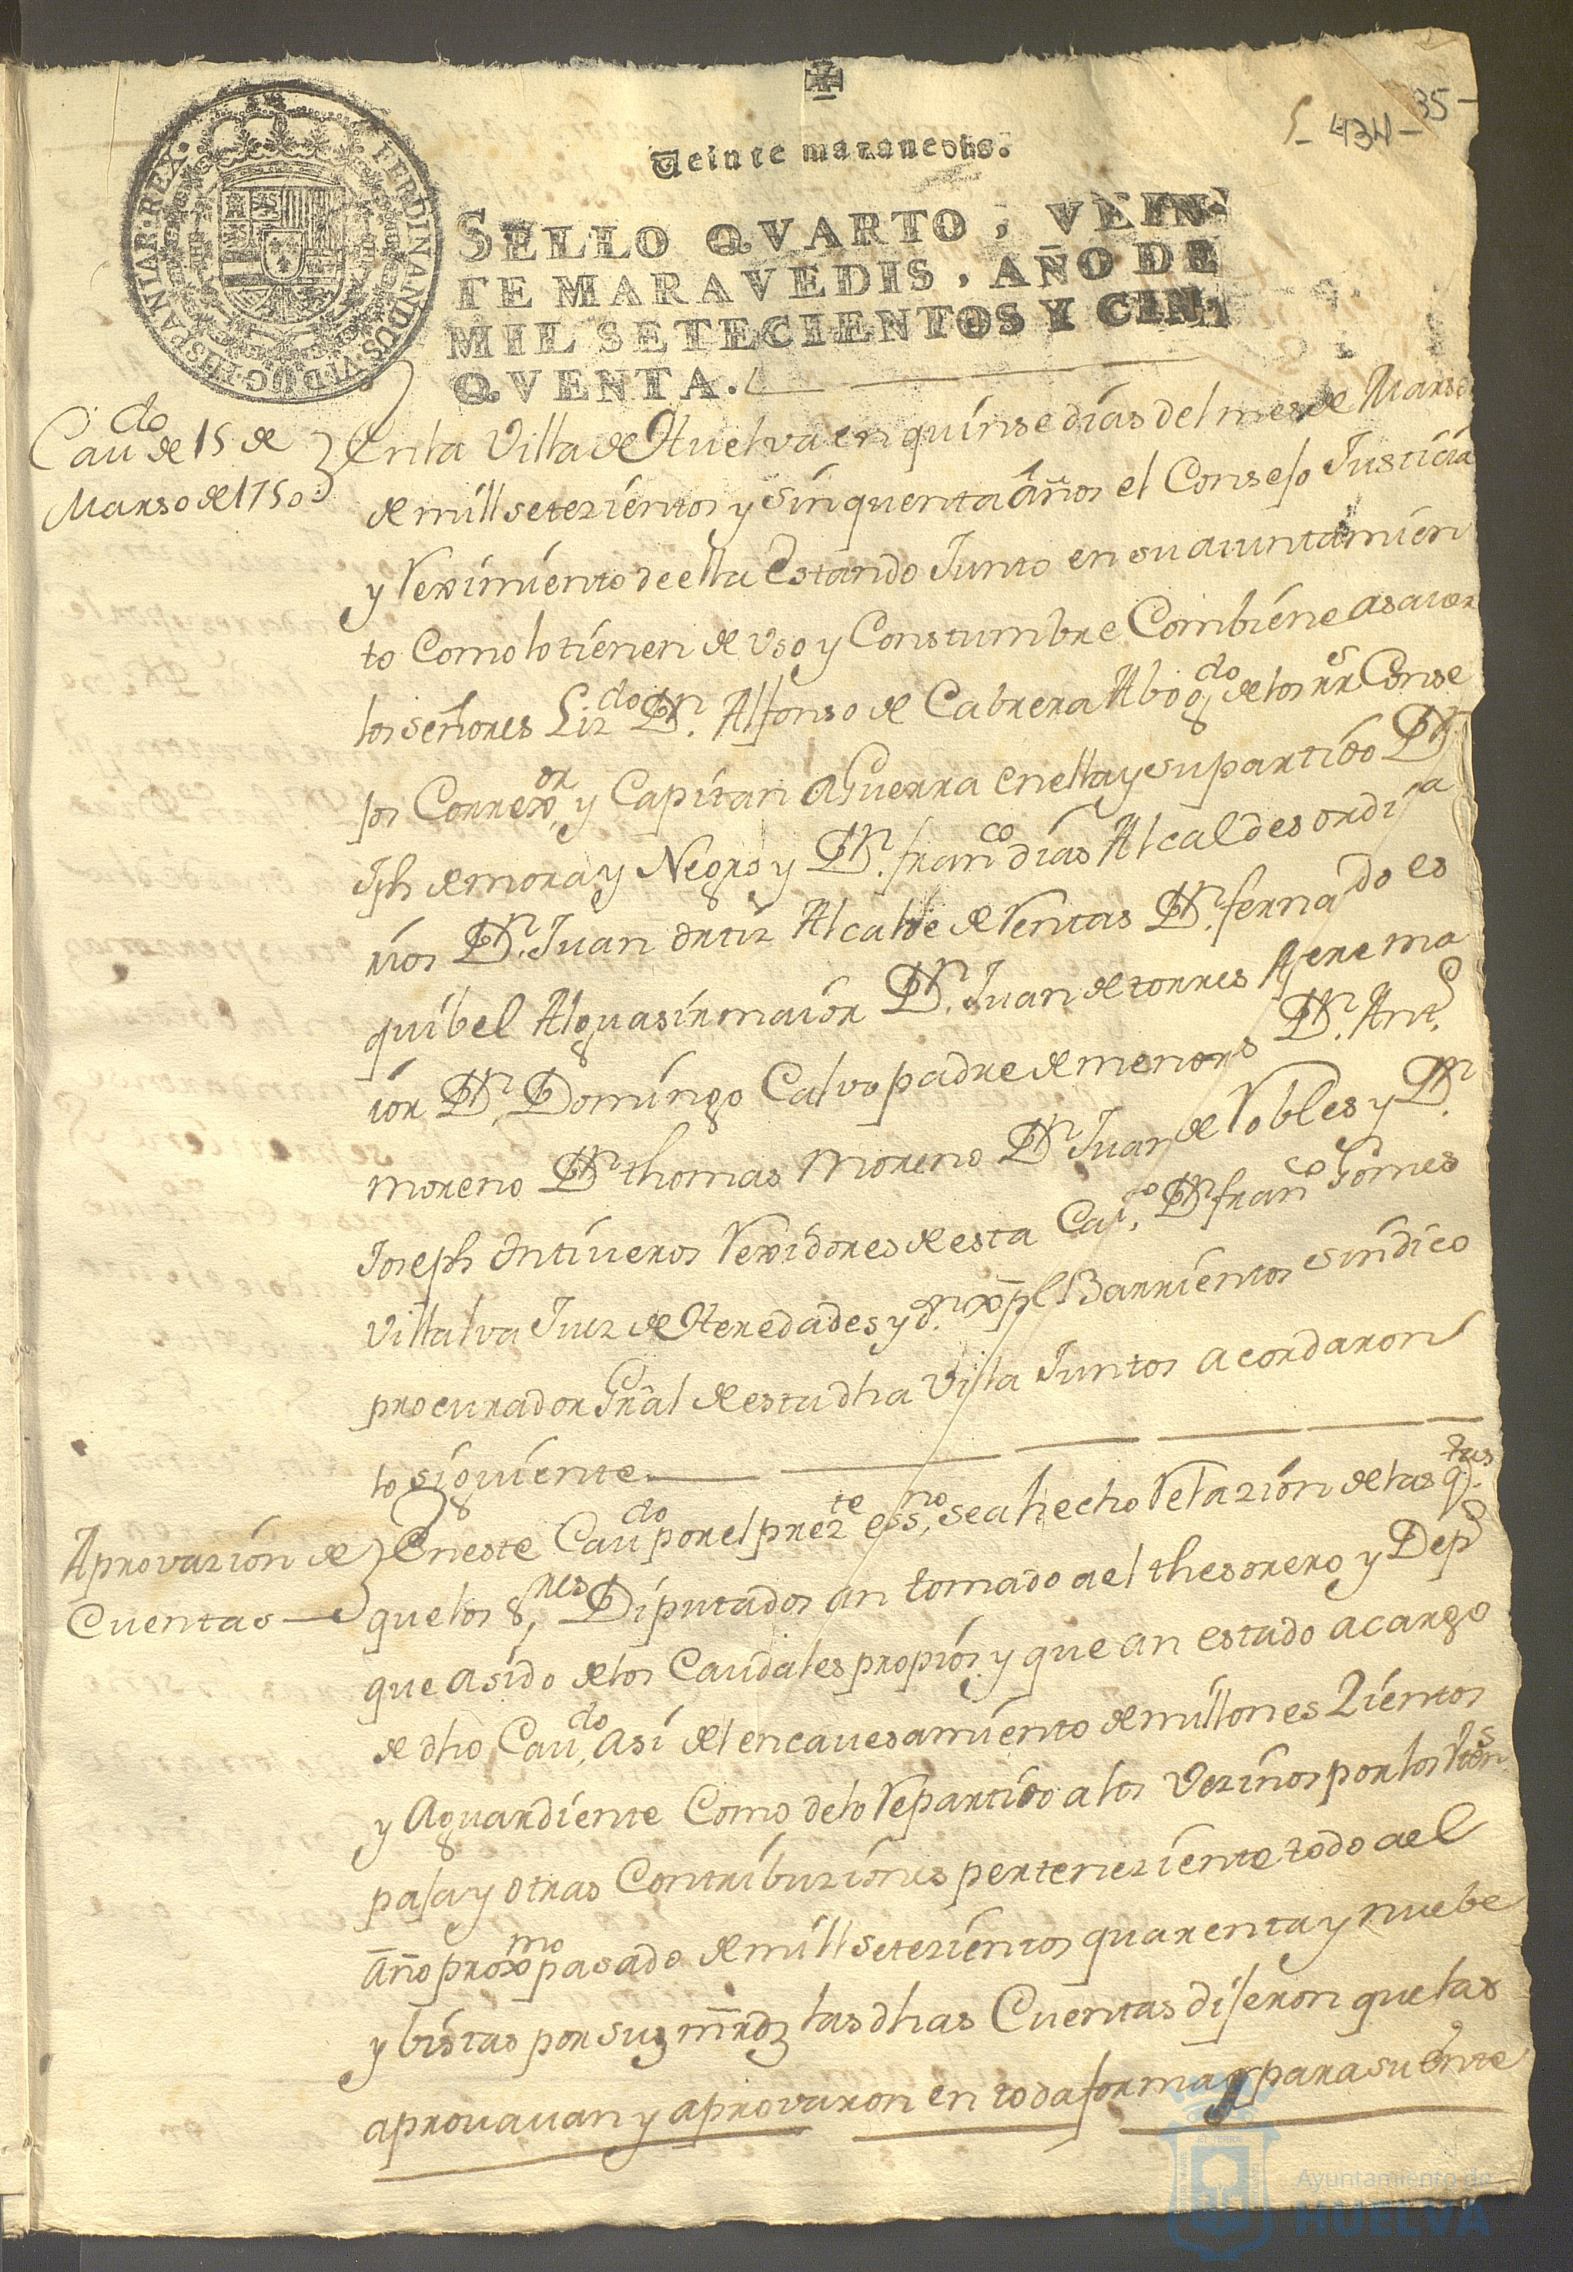 5-434-35-
Veinte marauedis.
SELLO QVARTO, VEIN-
TE MARAVEDIS, AÑO DE
MIL SETECIENTOS Y CIN-
QVENTA.
FERDINANDUS·VI·D·G·HISPANIAR·REX·
Caudo de 15 de
Marso de 1750
En la Villa de Huelva en quinse dias del mes de Marso
de mill setezientos y sinquenta años el Consejo Justicia
y Reximiento de ella Estando Junto en su aiuntamien
to Como lo tienen de Uso y Constumbre Combiene asaver
los señores Lizdo Dn. Alfonso de Cabrera Abogdo de los RRs Conse
jos Correxor, y Capitan aGuerra en ella y su partido Dn.
Jph de mora y Negro y Dn. franco dias Alcaldes ordina
rios Dn. Juan ortiz Alcalde de Rentas Dn. fernando es
quibel Alguasir maior Dn. Juan de torres Ajere ma
ior Dn. Domingo Calvo padre de menores Dn. Anto.
moreno Dn thomas Moreno Dn Juan de Robles y Dn.
Joseph Ontiveros Rexidores de esta Cauo, Dn franco Gomes
Villalva Juez de Heredades y dn. xpl Barrientos sindico
procurador Gral de esta dha Villa Juntos acordaron
lo siguiente.
Aprovazion de
Cuentas
En este Caudo por el prezte essno, se a hecho Relazion de las qtas.
que los Sres, Diputados an tomado a el thesorero y Depo
que a sido de los Caudales propios y que an estado a cargo
de dho Caudo, asi del encavesamiento de millones Zientos
y Aguardiente Como de lo Repartido a los Vezinos por los Utens
paja y otras Contribuziones pertenezientes todo a el
año proxmo pasado de mill setezientos quarenta y nuebe
y bistas por sus mrds las dhas Cuentas dijeron que las
aprovavan y aprovaron en toda forma y para su ente
Ayuntamiento de
HUELVA